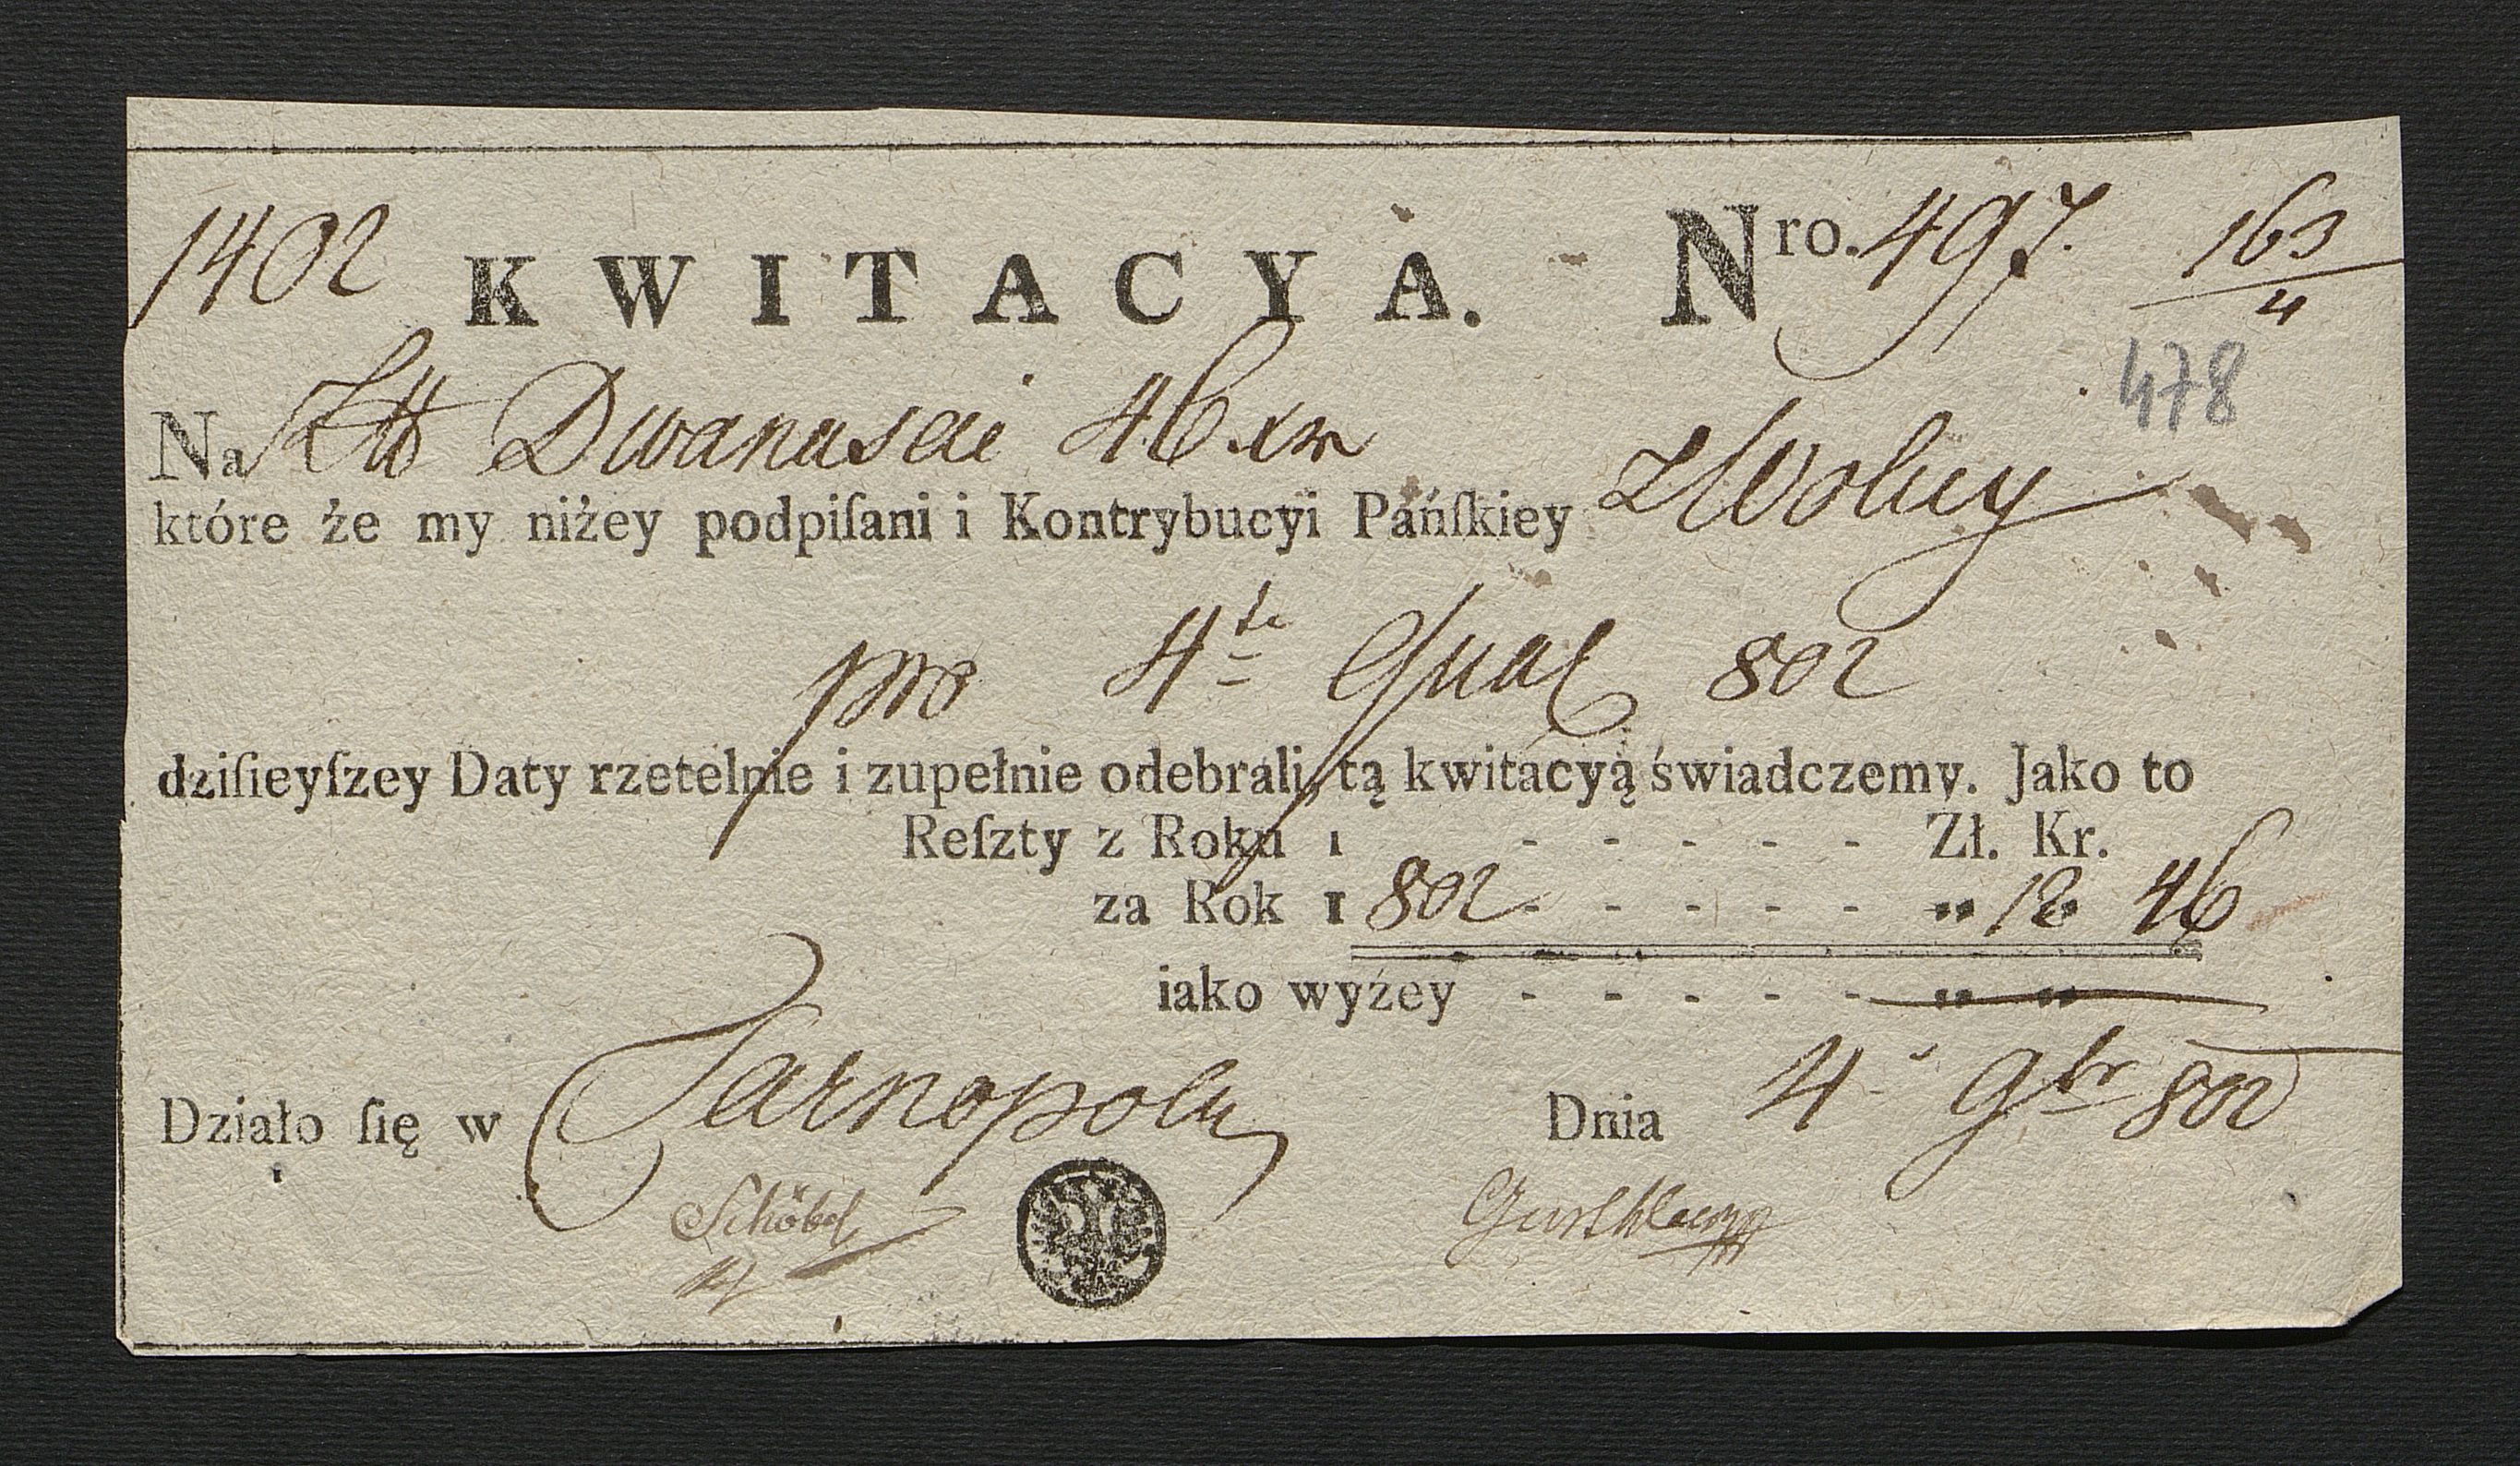 1402 KWITACYA. Nro. 497. 163/4
478
Na Złt Dwanascie 46 xr
które że my niżey podpiſani i Kontrybucyi Páńſkiey z Wolicy
pro 4te Qual 802
dziſieyſzey Daty rzetelnie i zupełnie odebráli, tą kwitácyą świadczemy. Jako to
Reſzty z Roku 1 - - - - - Zł. Kr.
za Rok 1802 - - - - - „ 12 „ 46
iako wyżey - - - - - „ „
Działo ſię w Tarnopolu Dnia 4 9br 802
Schöbel